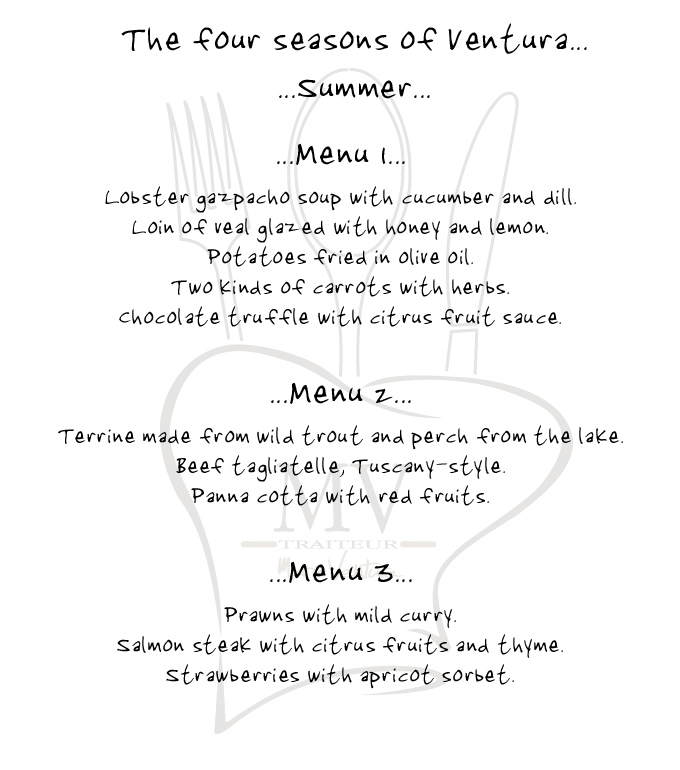 The four seasons of Ventura...
...Summer...
...Menu 1...
Lobster gazpacho soup with cucumber and dill.
Loin of veal glazed with honey and lemon.
Potatoes fried in olive oil.
Two kinds of carrots with herbs.
Chocolate truffle with citrus fruit sauce.
...Menu 2...
Terrine made from wild trout and perch from the lake.
Beef tagliatelle, Tuscany-style.
Panna cotta with red fruits.
MV
TRAITEUR
...Menu 3...
Prawns with mild curry.
Salmon steak with citrus fruits and thyme.
Strawberries with apricot sorbet.